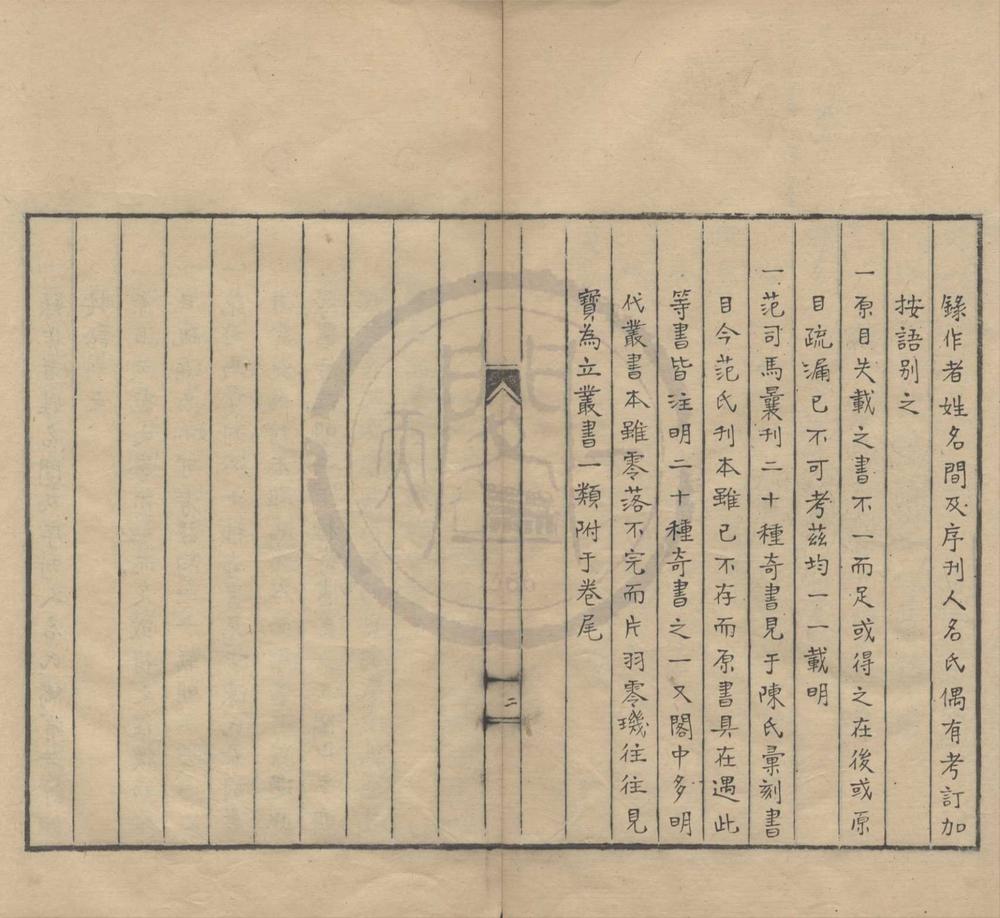 錄作者姓名間及序刊人名氏偶有考訂加
按語別之
一原目失載之書不一而足或得之在後或原
目疏漏已不可考茲均一一載明
一范司馬彙刊二十種奇書見于陳氏彙刻書
目今范氏刊本雖已不存而原書具在遇此
等書皆注明二十種奇書之一又閣中多明
代叢書本雖零落不完而片羽零璣往往見
寶為立叢書一類附于卷尾
二